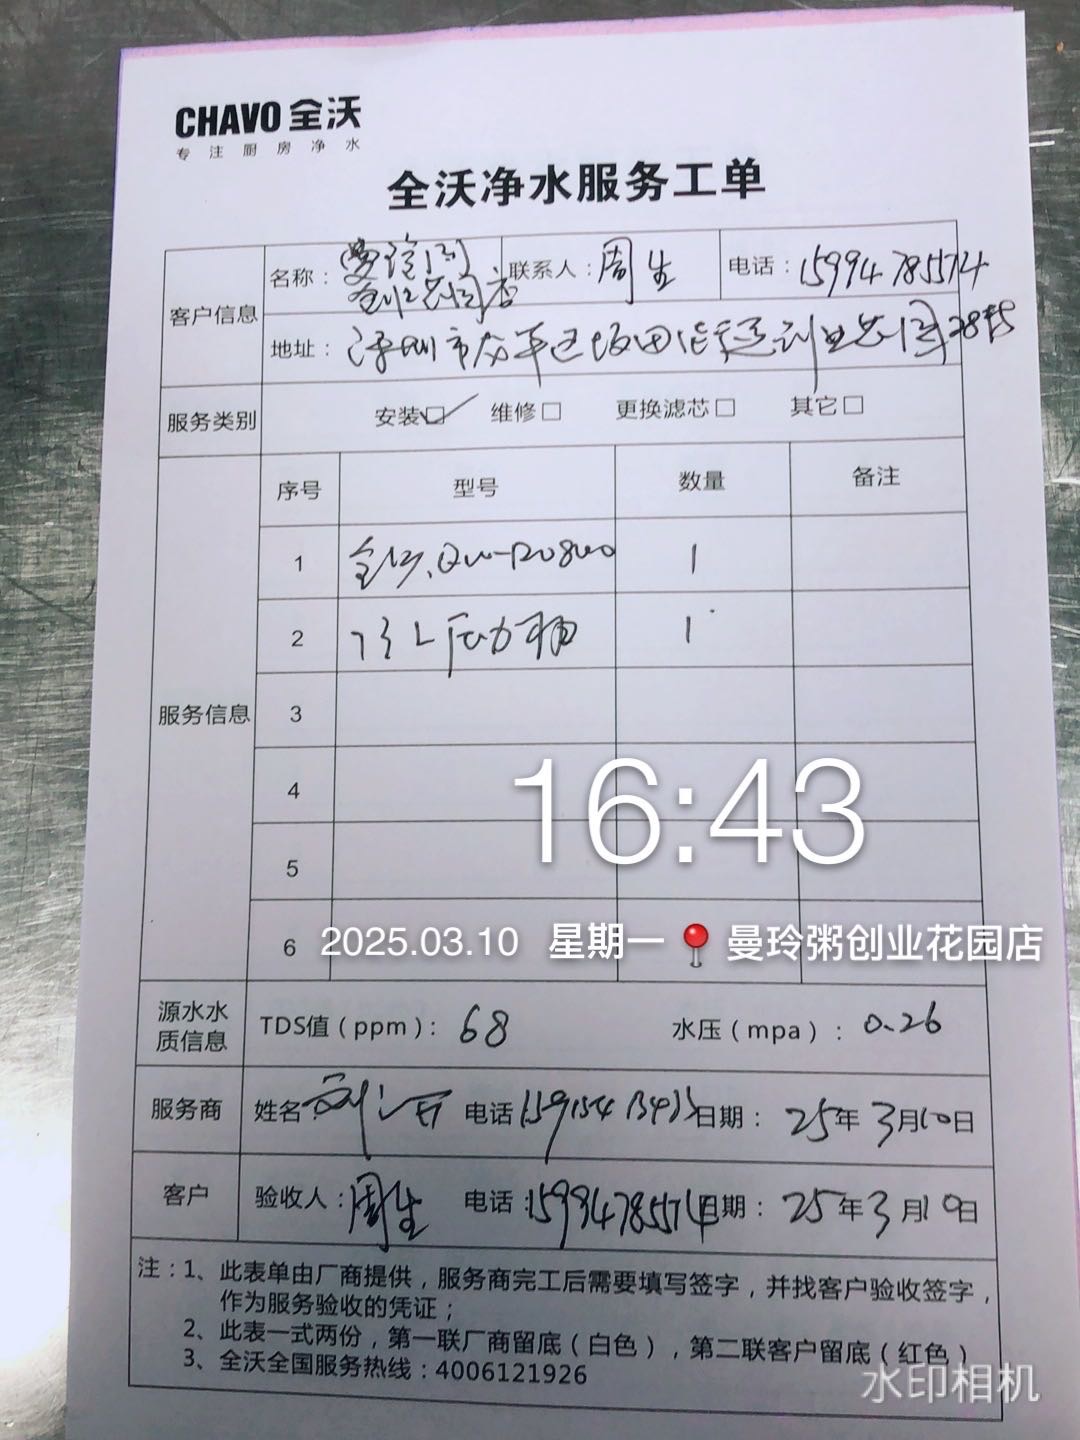 CHAVO 全沃
专注厨房净水
全沃净水服务工单
客户信息
名称：曼玲粥
创业花园店
联系人：周生
电话：15994785574
地址：深圳市龙华区坂田街道创业花园28栋
服务类别 安装☑ 维修□ 更换滤芯□ 其它□
服务信息
序号 型号 数量 备注
1 全沃 1
2 压力桶 1
3
4
5
6
16:43
2025.03.10 星期一 曼玲粥创业花园店
源水水质信息 TDS值（ppm）：68 水压（mpa）：0.26
服务商 姓名：刘 电话 日期：25年3月10日
客户 验收人：周生 电话：15994785574 日期：25年3月10日
注：1、此表单由厂商提供，服务商完工后需要填写签字，并找客户验收签字，
作为服务验收的凭证；
2、此表一式两份，第一联厂商留底（白色），第二联客户留底（红色）
3、全沃全国服务热线：4006121926
水印相机